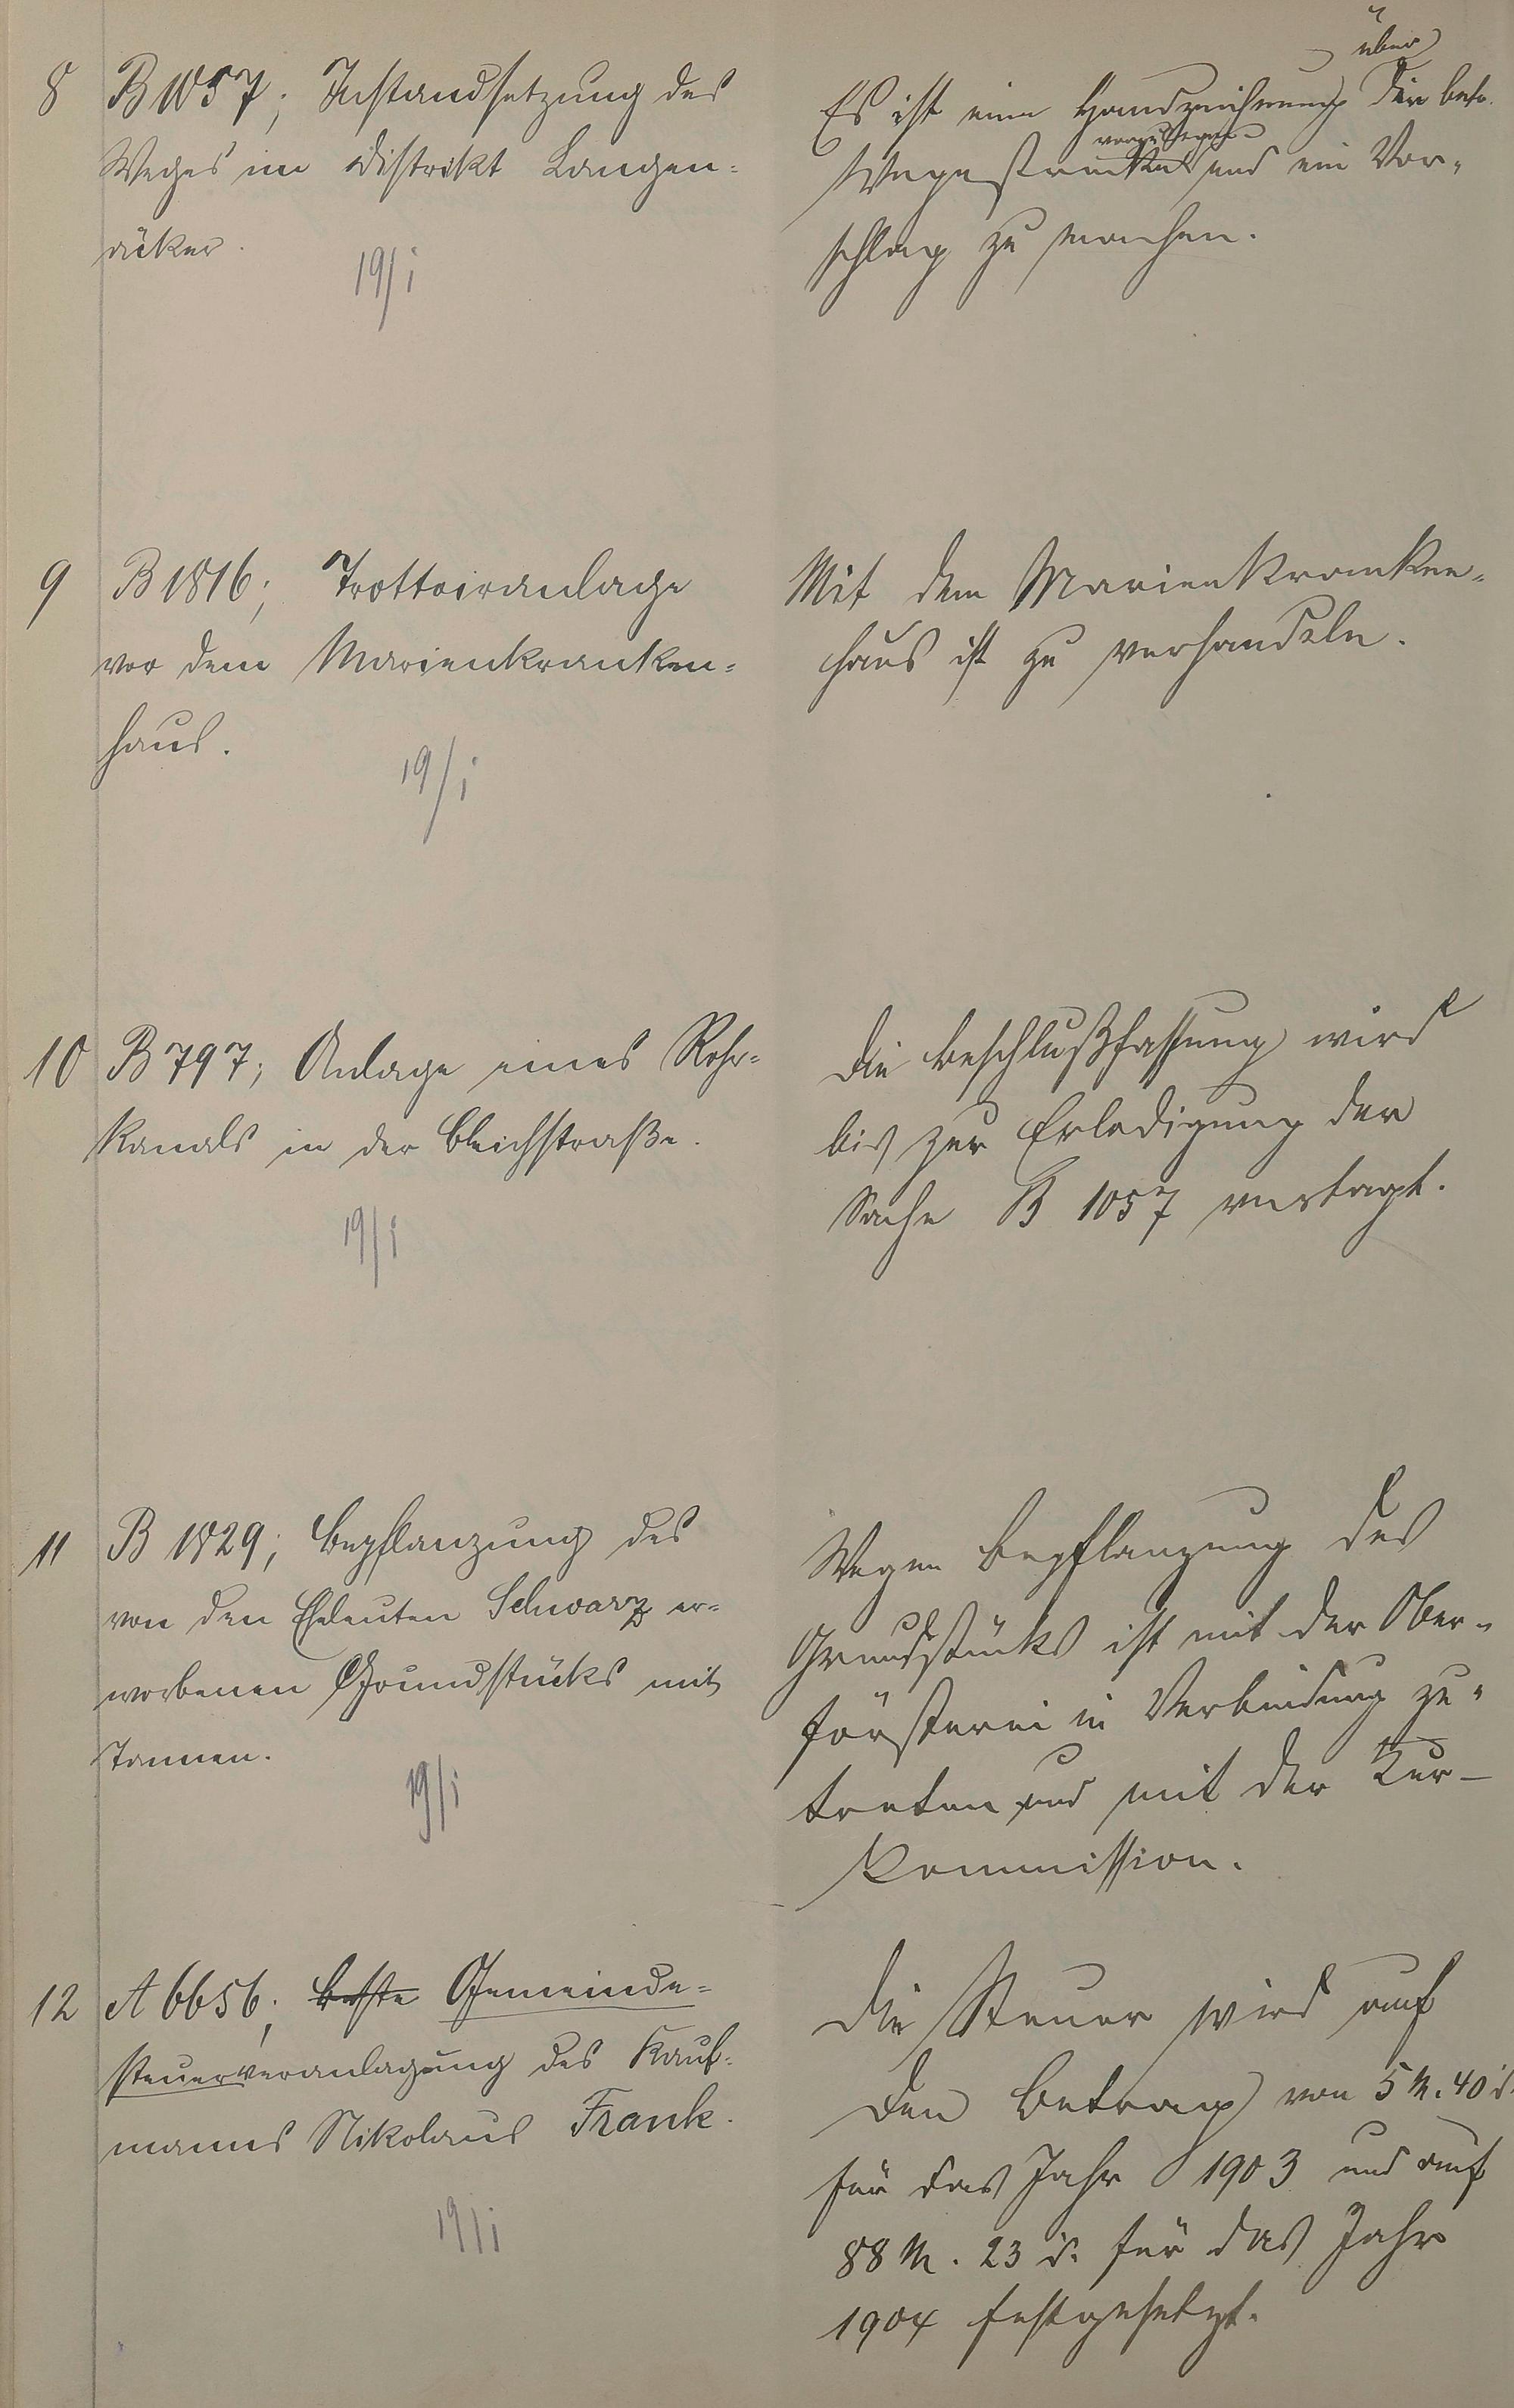 8 B 1057; Instandsetzung des
Weges im Distrikt Langen-
äcker.
19/I
über
Es ist eine Handzeichnung die betr.
vorzulegen
Wegestrecke und ein Vor-
schlag zu machen.
9 B 1816; Trottoiranlage
vor dem Marienkranken-
haus.
19/I
Mit dem Marienkranken-
haus ist zu verhandeln.
10 B 797; Anlage eines Rohr-
kanals in der Bleichstraße.
19/I
Die Beschlußfassung wird
bis zur Erledigung der
Sache B 1057 vertagt.
11 B 1829; Bepflanzung des
von den Eheleuten Schwarz er-
worbenen Grundstücks mit
Tannen.
19/I
Wegen Bepflanzung des
Grundstücks ist mit der Ober-
försterei in Verbindung zu
treten und mit der Kur-
kommission.
12 A 6656; Gemeinde-
steuerveranlagung des Kauf-
manns Nikolaus Frank.
19/I
Die Steuer wird auf
den Betrag von 5 M. 40 d.
für das Jahr 1903 und auf
88 M. 23 d. für das Jahr
1904 festgesetzt.